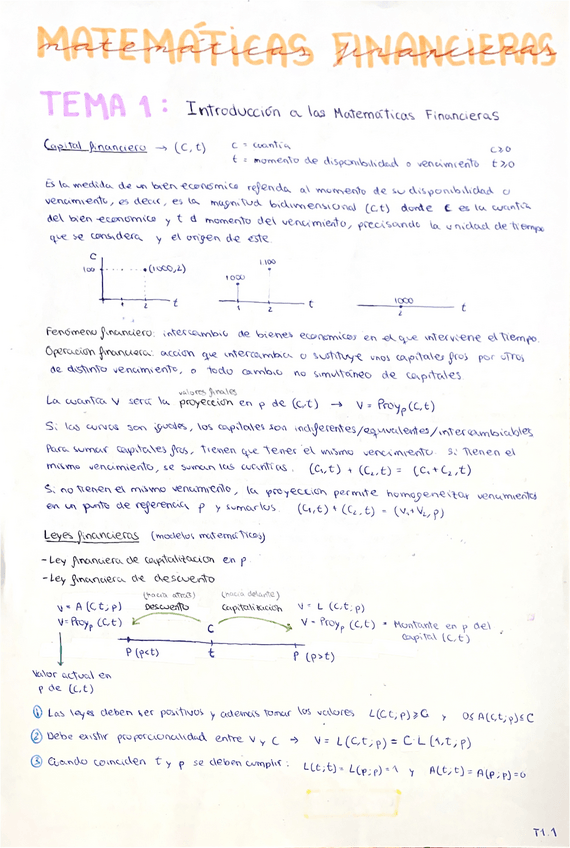 MATEMÁTICAS FINANCIERAS
matemáticas financieras
TEMA 1: Introducción a las Matemáticas Financieras
Capital financiero → (C, t) C = cuantía C≥0
t = momento de disponibilidad o vencimiento t≥0
Es la medida de un bien económico referida al momento de su disponibilidad o
vencimiento, es decir, es la magnitud bidimensional (C,t) donde C es la cuantía
del bien económico y t el momento del vencimiento, precisando la unidad de tiempo
que se considera y el origen de este.
C
100 •(1000,2)
1 2 t
1000 1.100
1 2 t
1000
2 t
Fenómeno financiero: intercambio de bienes económicos en el que interviene el tiempo.
Operación financiera: acción que intercambia o sustituye unos capitales fros por otros
de distinto vencimiento, o todo cambio no simultáneo de capitales
valores finales
La cuantía V será la proyección en p de (C,t) → V = Proyp(C,t)
Si las curvas son iguales, los capitales son indiferentes/equivalentes/intercambiables
Para sumar capitales fros, tienen que tener el mismo vencimiento. Si tienen el
mismo vencimiento, se suman las cuantías. (C1,t) + (C2,t) = (C1+C2,t)
Si no tienen el mismo vencimiento, la proyección permite homogeneizar vencimientos
en un punto de referencia p y sumarlos. (C1,t) + (C2,t) = (V1+V2,p)
Leyes financieras (modelos matemáticos)
- Ley financiera de capitalización en p
- Ley financiera de descuento
(hacia atrás) (hacia delante)
V = A (C,t;p) Descuento capitalización V = L (C,t;p)
V = Proyp (C,t) C V = Proyp (C,t) = Montante en p del
capital (C,t)
P (p<t) t P (p>t)
Valor actual en
p de (C,t)
① Las leyes deben ser positivas y además tomar los valores L(C,t;p)≥C y 0≤A(C,t;p)≤C
② Debe existir proporcionalidad entre V y C → V = L(C,t;p) = C·L(1,t;p)
③ Cuando coinciden t y p se deben cumplir: L(t;t) = L(p;p) = 1 y A(t,t) = A(p;p) = 0
T1.1